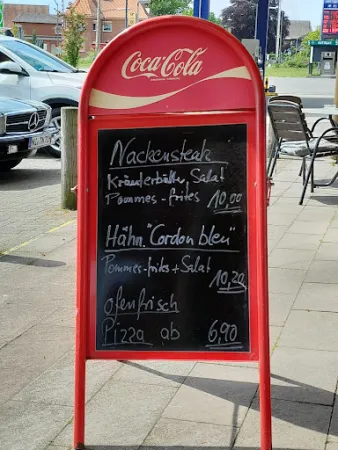 Coca-Cola
Nackensteak
Kräuterbutter Salat
Pommes-frites 10,00
Hähn. "Cordon bleu"
Pommes-frites + Salat
10,20
ofenfrisch
Pizza ab 6,90